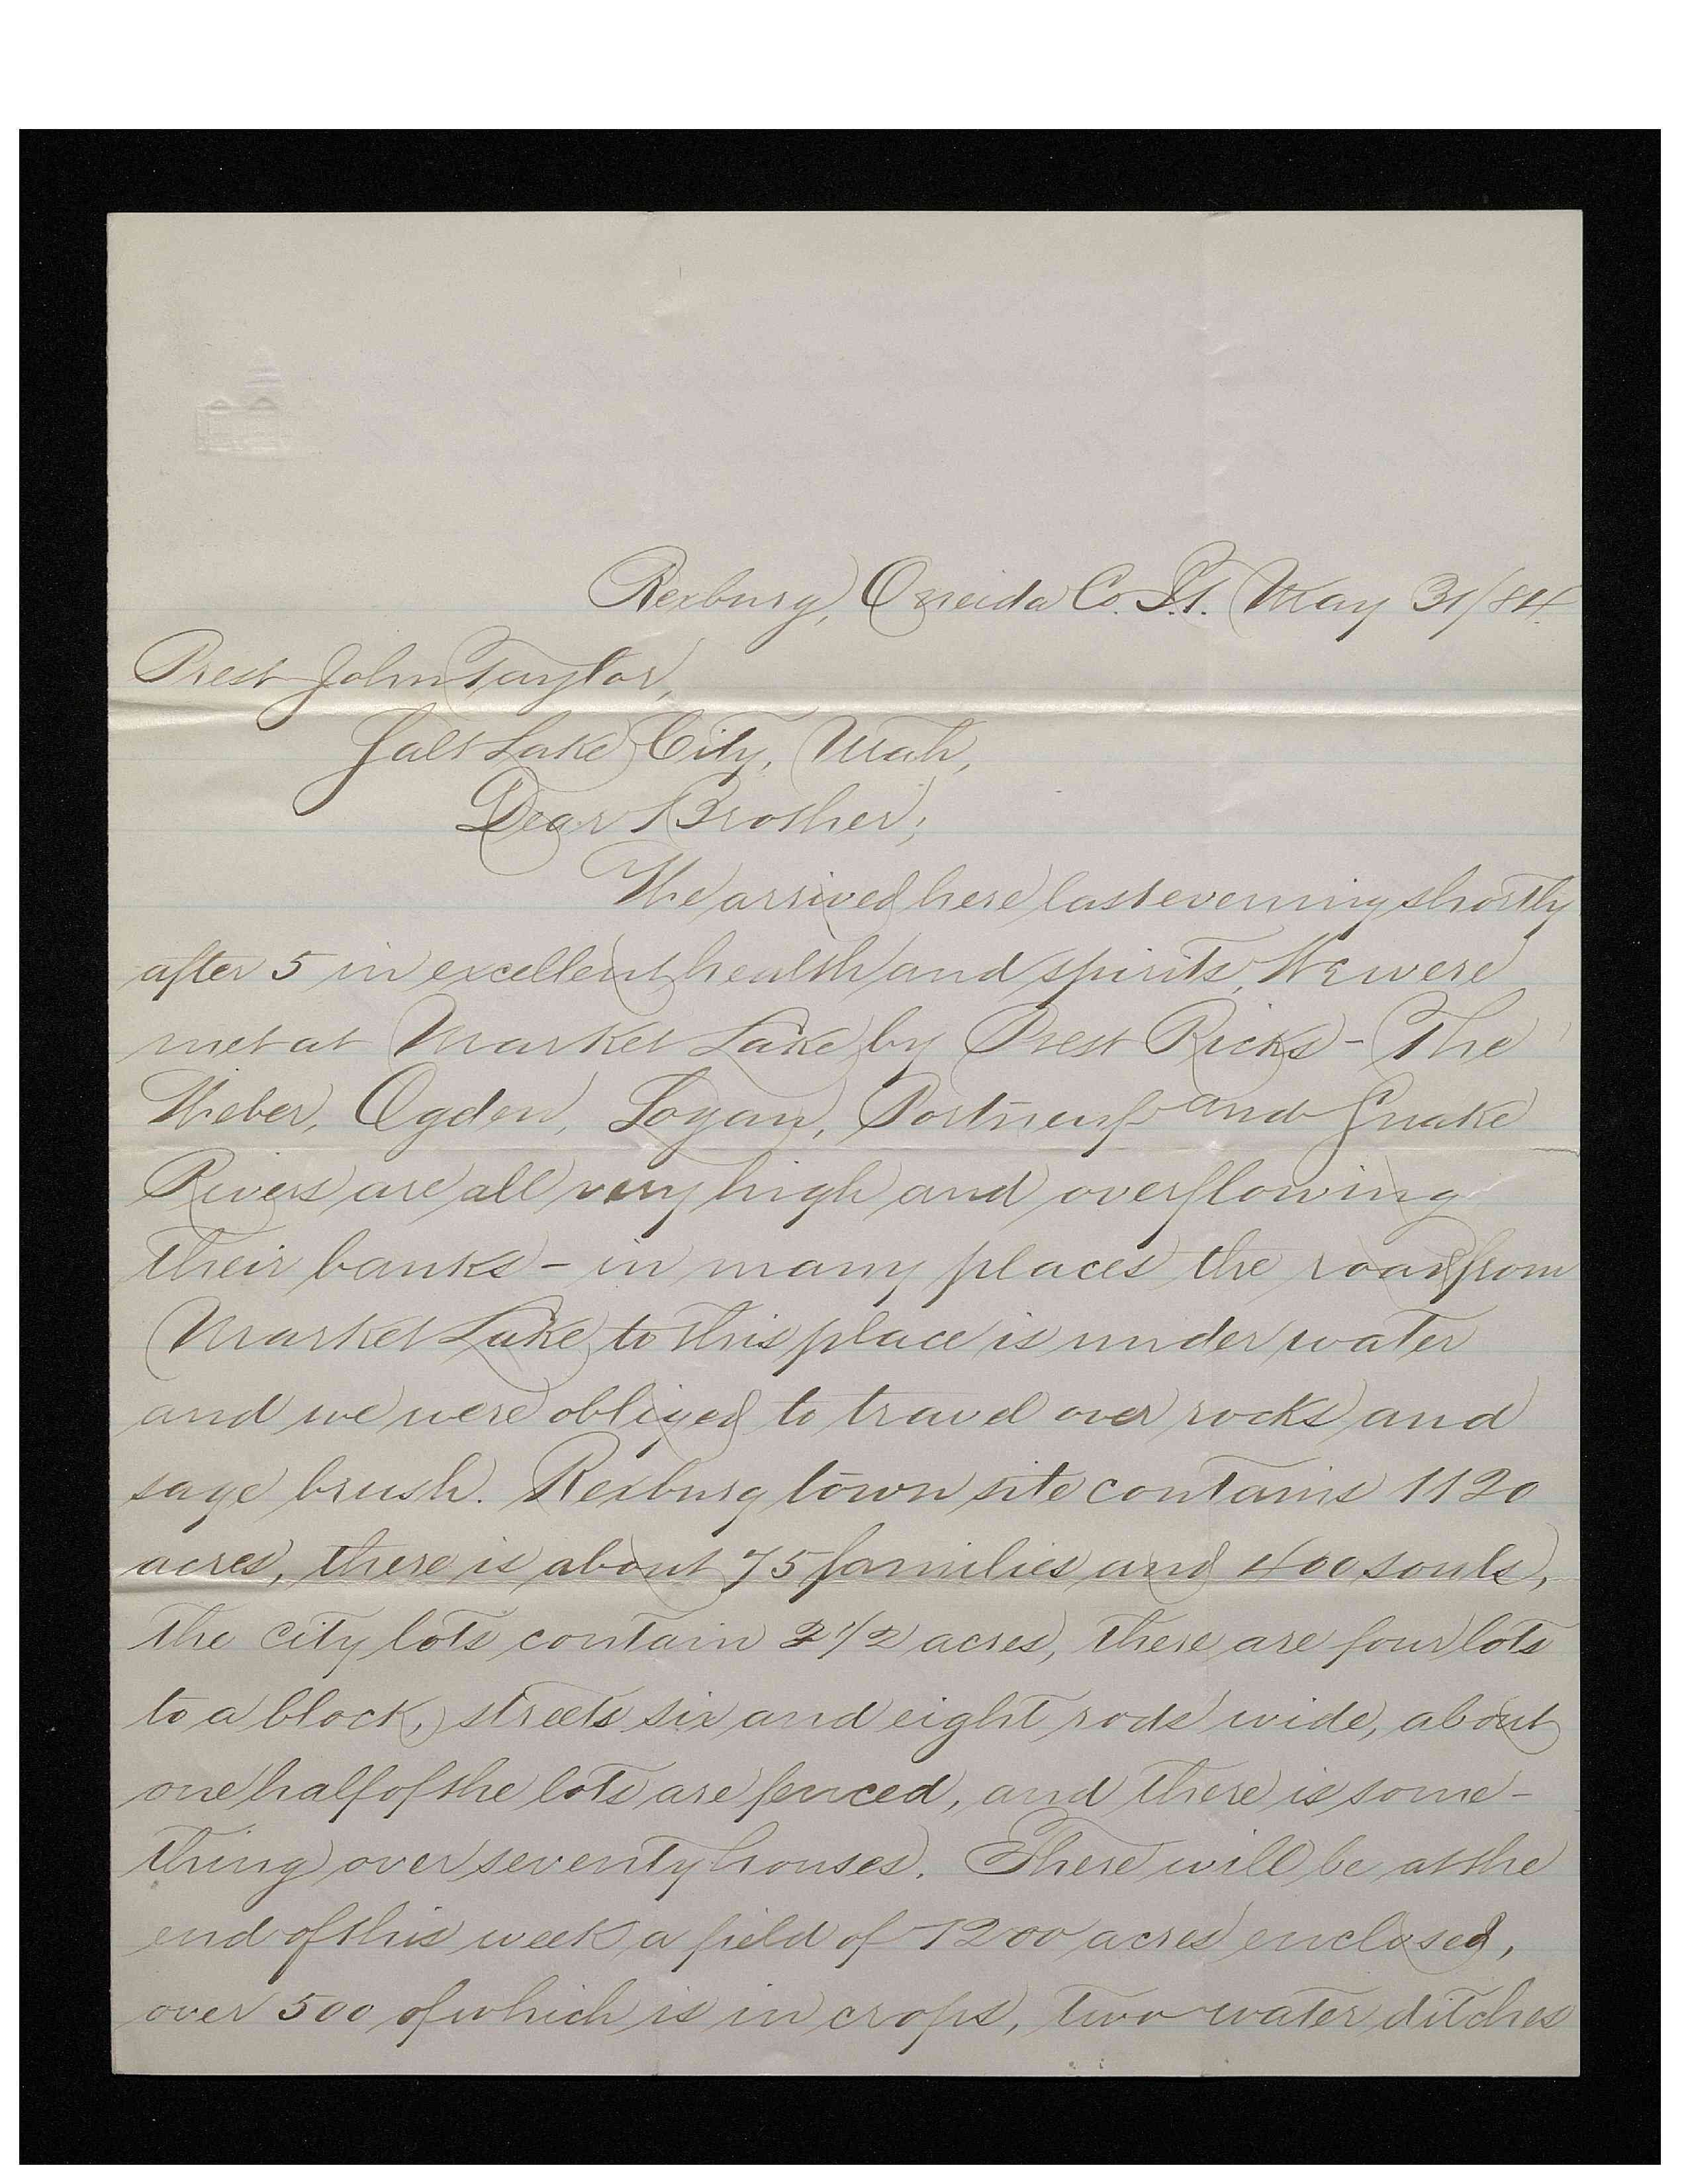 Rexburg, Oneida Co. I.T. May 31/84.
Prest John Taylor,
Salt Lake City, Utah,
Dear Brother;
We arrived here last evening shortly
after 5 in excellent health and spirits, We were
met at Market Lake by Prest Ricks - The
Weber, Ogden, Logan, Portneuf and Snake
Rivers are all very high and overflowing
their banks - in many places the road from
Market Lake to this place is under water
and we were obliged to travel over rocks and
sage brush. Rexburg town site contains 1120
acres, there is about 75 families and 400 souls,
the city lots contain 2 1/2 acres, there are four lots
to a block, streets six and eight rods wide, about
one half of the lots are fenced, and there is some-
thing over seventy houses. There will be at the
end of this week a field of 1200 acres enclosed,
over 500 of which is in crops, two water ditches